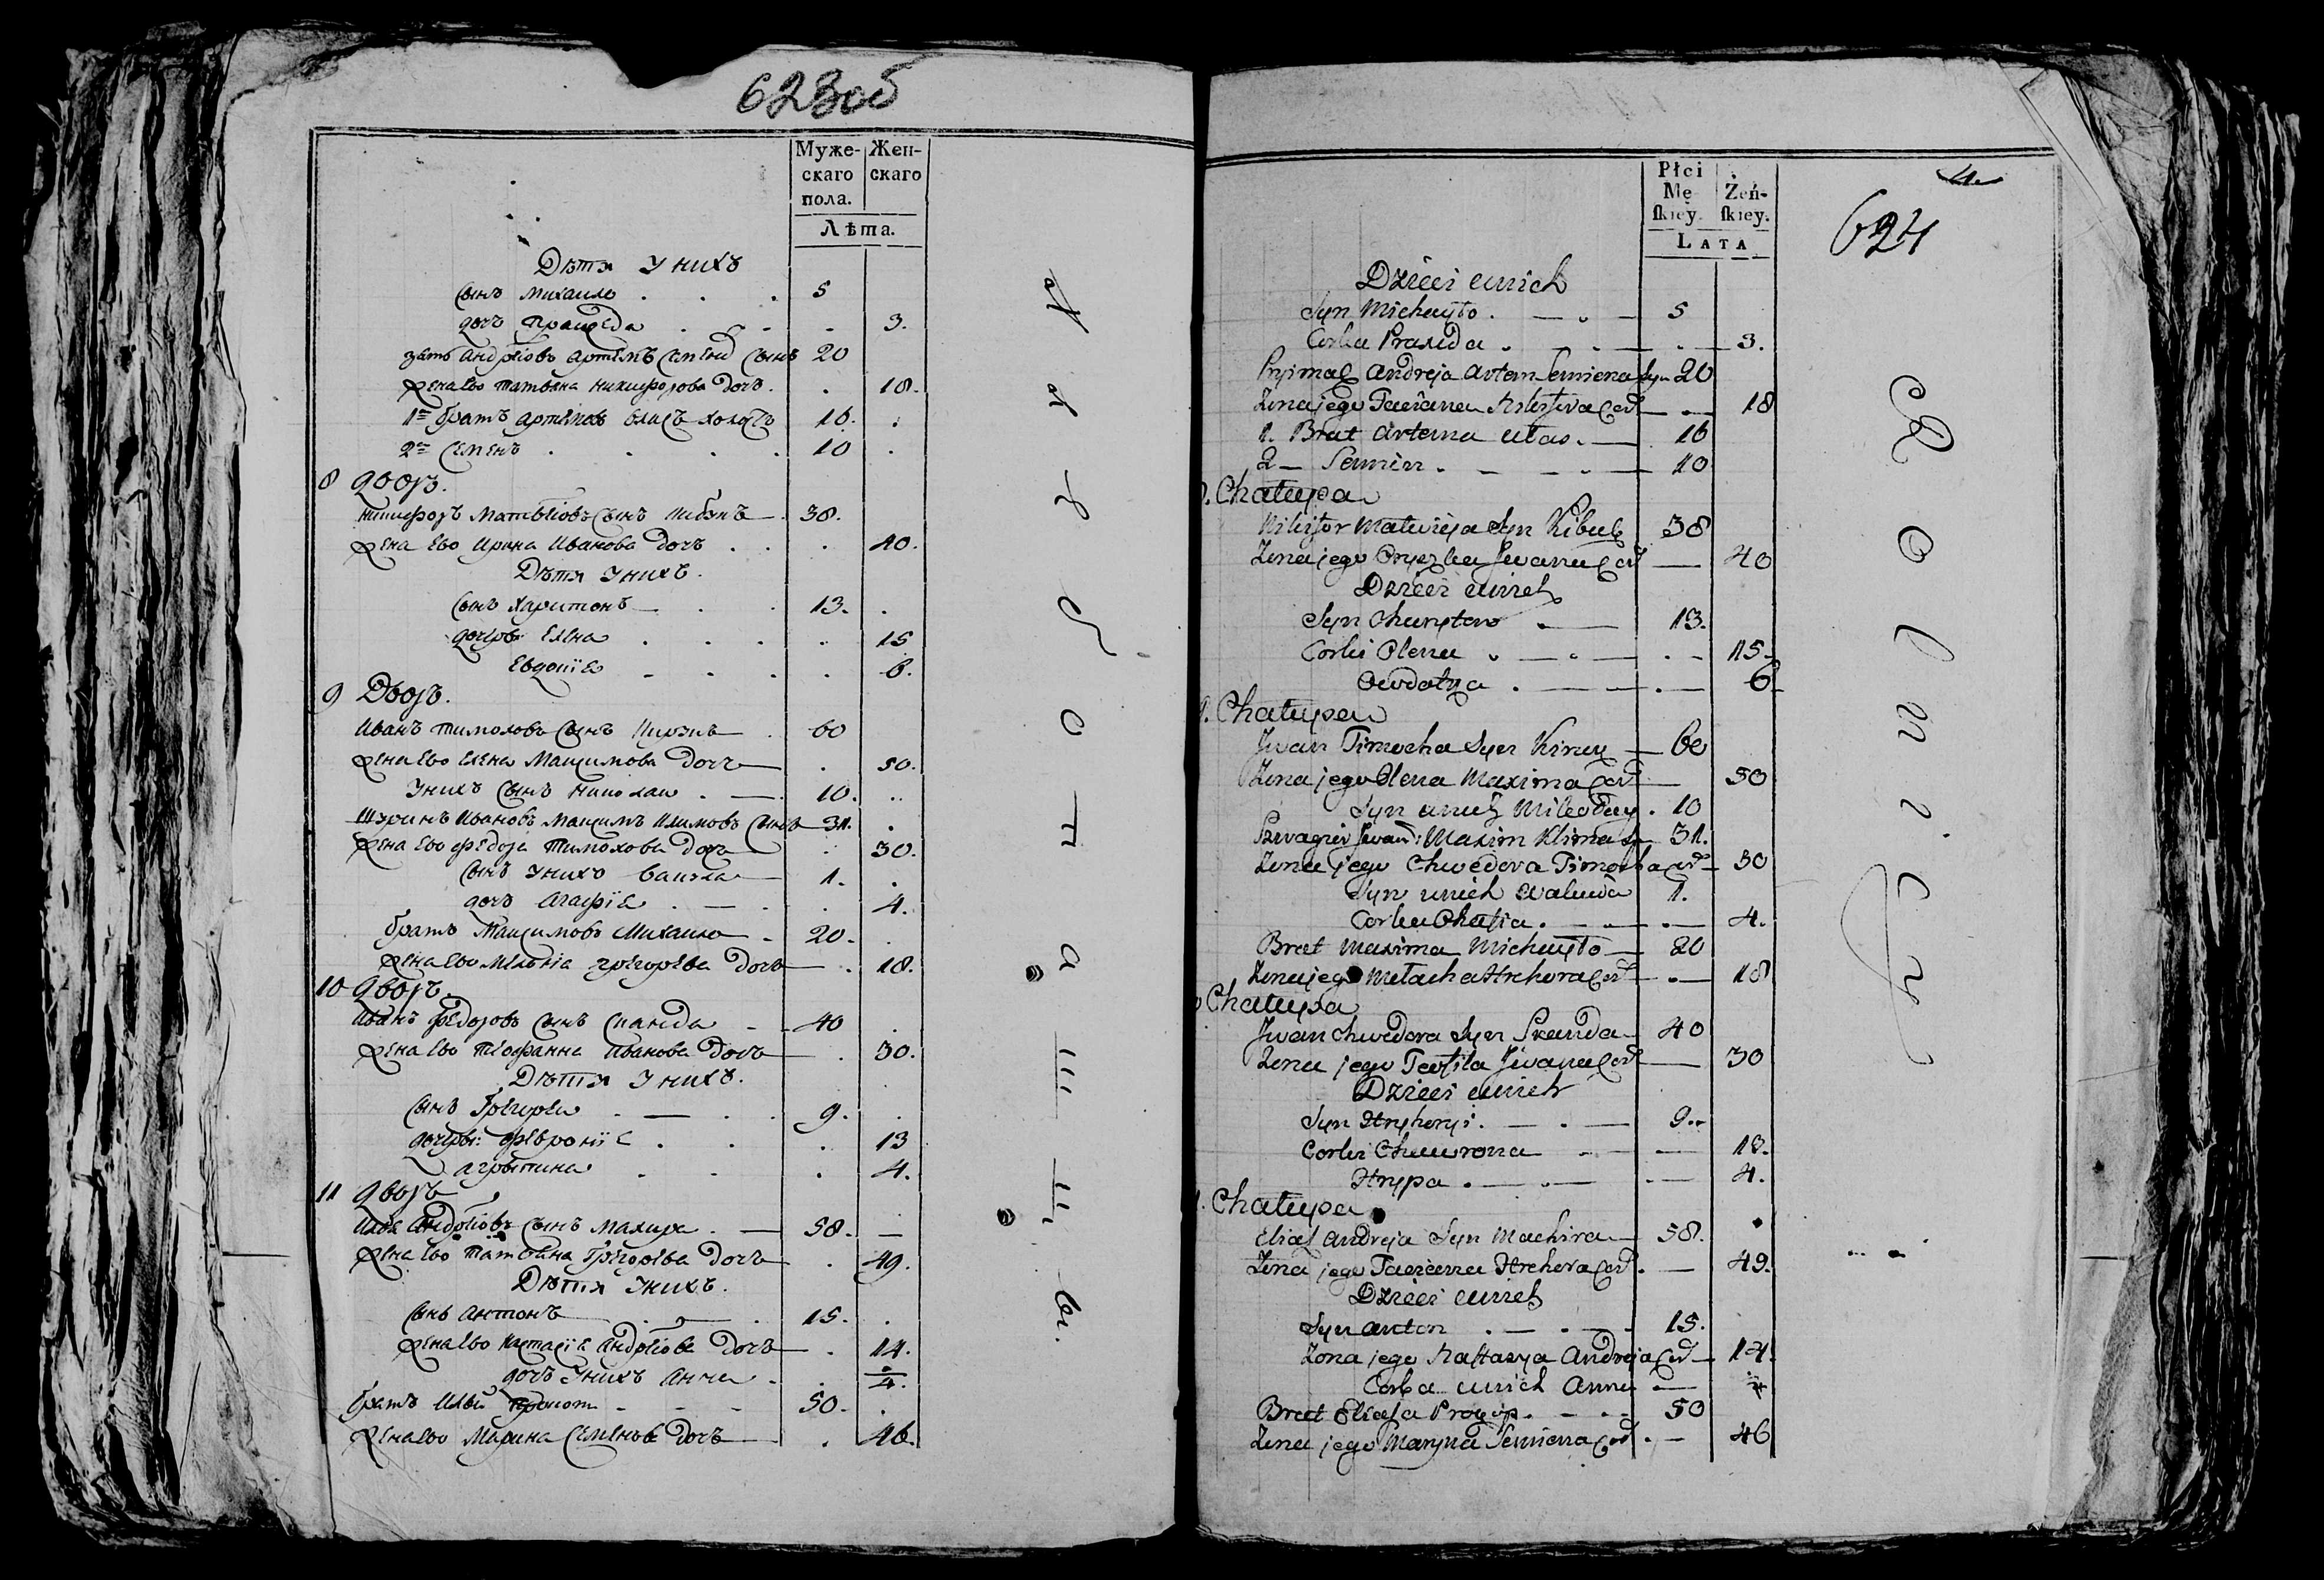 623об
Муже- Жен-
скаго скаго
пола.
Лѣта.
Дѣти У нихъ
Сынъ Михаило . . . 5
дочь Праѯеда . . . 3.
зять Андрѣіовъ Артемъ Сынъ 20
Жена Ево Татьяна Никифорова Дочь . . 18.
1й братъ Артемовъ Власъ холостъ 16.
2й Семенъ . . . . 10
8 дворъ.
Никифоръ Матвѣіовъ Сынъ 38.
Жена Ево Ирина Иванова Дочь . . 40.
Дѣти У нихъ.
Сынъ Харитонъ . . 13.
дочери Елена . . . 15
Евдокіе . . . 6.
9 Дворъ.
Иванъ Тимоховъ Сынъ . 60
Жена Ево Елена Максимова Дочь . 50.
У нихъ Сынъ Николаи . 10.
Шуринъ Ивановъ Максимъ Климовъ Сынъ 31.
Жена Ево Федора Тимохова Дочь . 30.
Сынъ У нихъ 1.
дочь Агафіе . . 4.
братъ Максимовъ Михаило . 20.
Жена Ево Григорева Дочь . 18.
10 дворъ.
Иванъ Федоровъ Сынъ Сканда 40
Жена Ево Иванова Дочь . 30.
Дѣти У нихъ.
Сынъ Григореи . . 9.
дочери: Февроніе . . 13
Агрипина . . 4.
11 дворъ
Илья Андрѣіовъ Сынъ Махира . 58.
Жена Ево Татьяна Григорева Дочь . 49.
Дѣти У нихъ.
Сынъ Антонъ . 15.
Жена Ево Настасіе Андрѣіова Дочь . 14.
дочь У нихъ Анна . 4.
братъ Ильи Прокопъ 50.
Жена Ево Марина Семенова Дочь . 46.
4.
624
Płci
Mę- Żeń-
ſkiey. ſkiey.
LATA
Dzieci u nich
Syn Michayło . 5
Corka Praxida . 3.
Pryimak Andreja Artem Semiena Syn 20
Zona jego Taciana Nikifora Cor. 18
1. Brat Artema Ułas . 16
2 Semien . 10
Chałupa
Nikifor Matwieja Syn Kibuk 38
Zona jego Oryszka Jwana Cor. 40
Dzieci u nich
Syn Charyton 13.
Corki Olena . 15.
Owdotya . 6.
9. Chałupa
Jwan Timocha Syn 60
Zona jego Olena Maxima Cor. 50
Syn u nich Mikołay . 10
Szwagier Jwana: Maxim Klima Syn 31.
Zona jego Chwedora Timocha Cor. 30
Syn u nich 1.
Corka Ohafia . 4.
Brat Maxima Michayło 20
Zona jego Hrehora Cor. 18
Chałupa
Jwan Chwedora Syn Skanda 40
Zona jego Teofila Jwana Cor. 30
Dzieci u nich
Syn Hryhory . 9.
Corki Chawrona 13.
Hrypa . 4.
Chałupa
Eliaſ Andreja Syn Machira 58.
Zona jego Taciana Hrehora Cor. 49.
Dzieci u nich
Syn Anton . 15.
Zona jego Naſtazya Andreja Cor. 14.
Corka u nich Anna 4
Brat Eliaſa Prokop . 50
Zona jego Maryna Semiena Cor. 46
Rolnicy